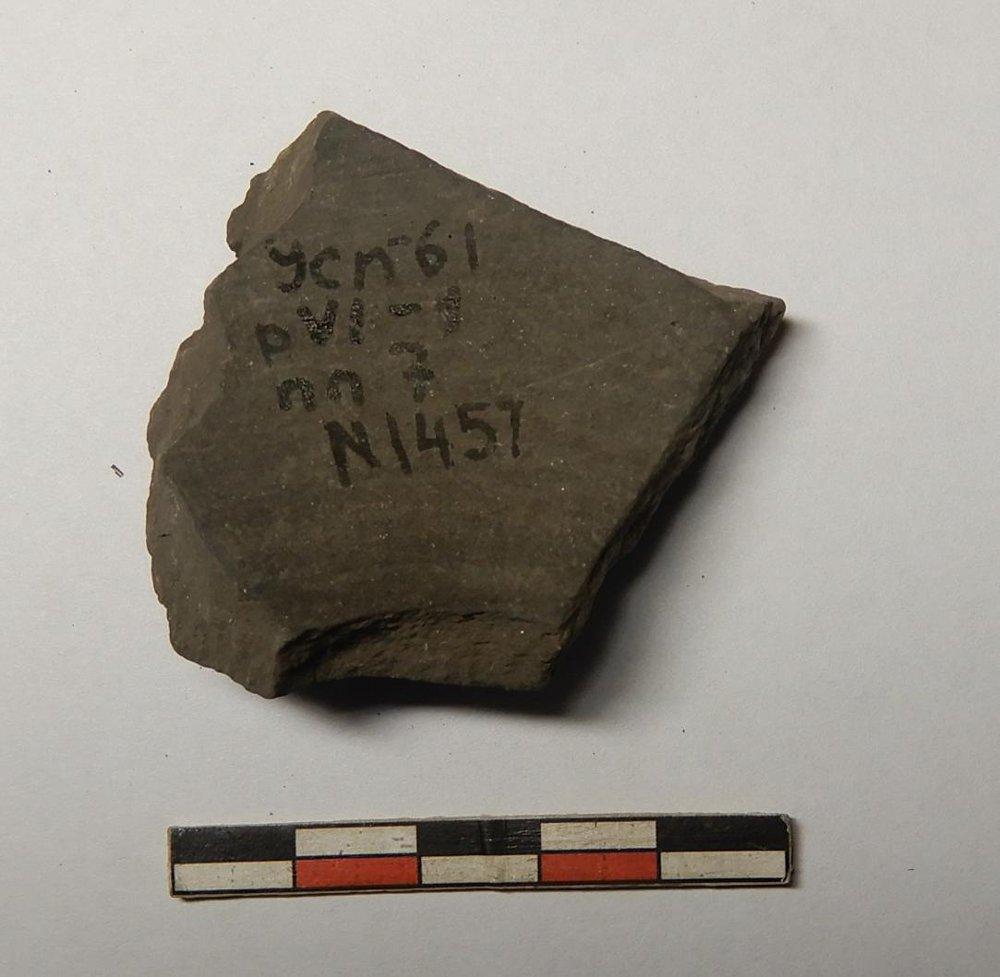 усп-61
рVII-1
пп 7
N1457